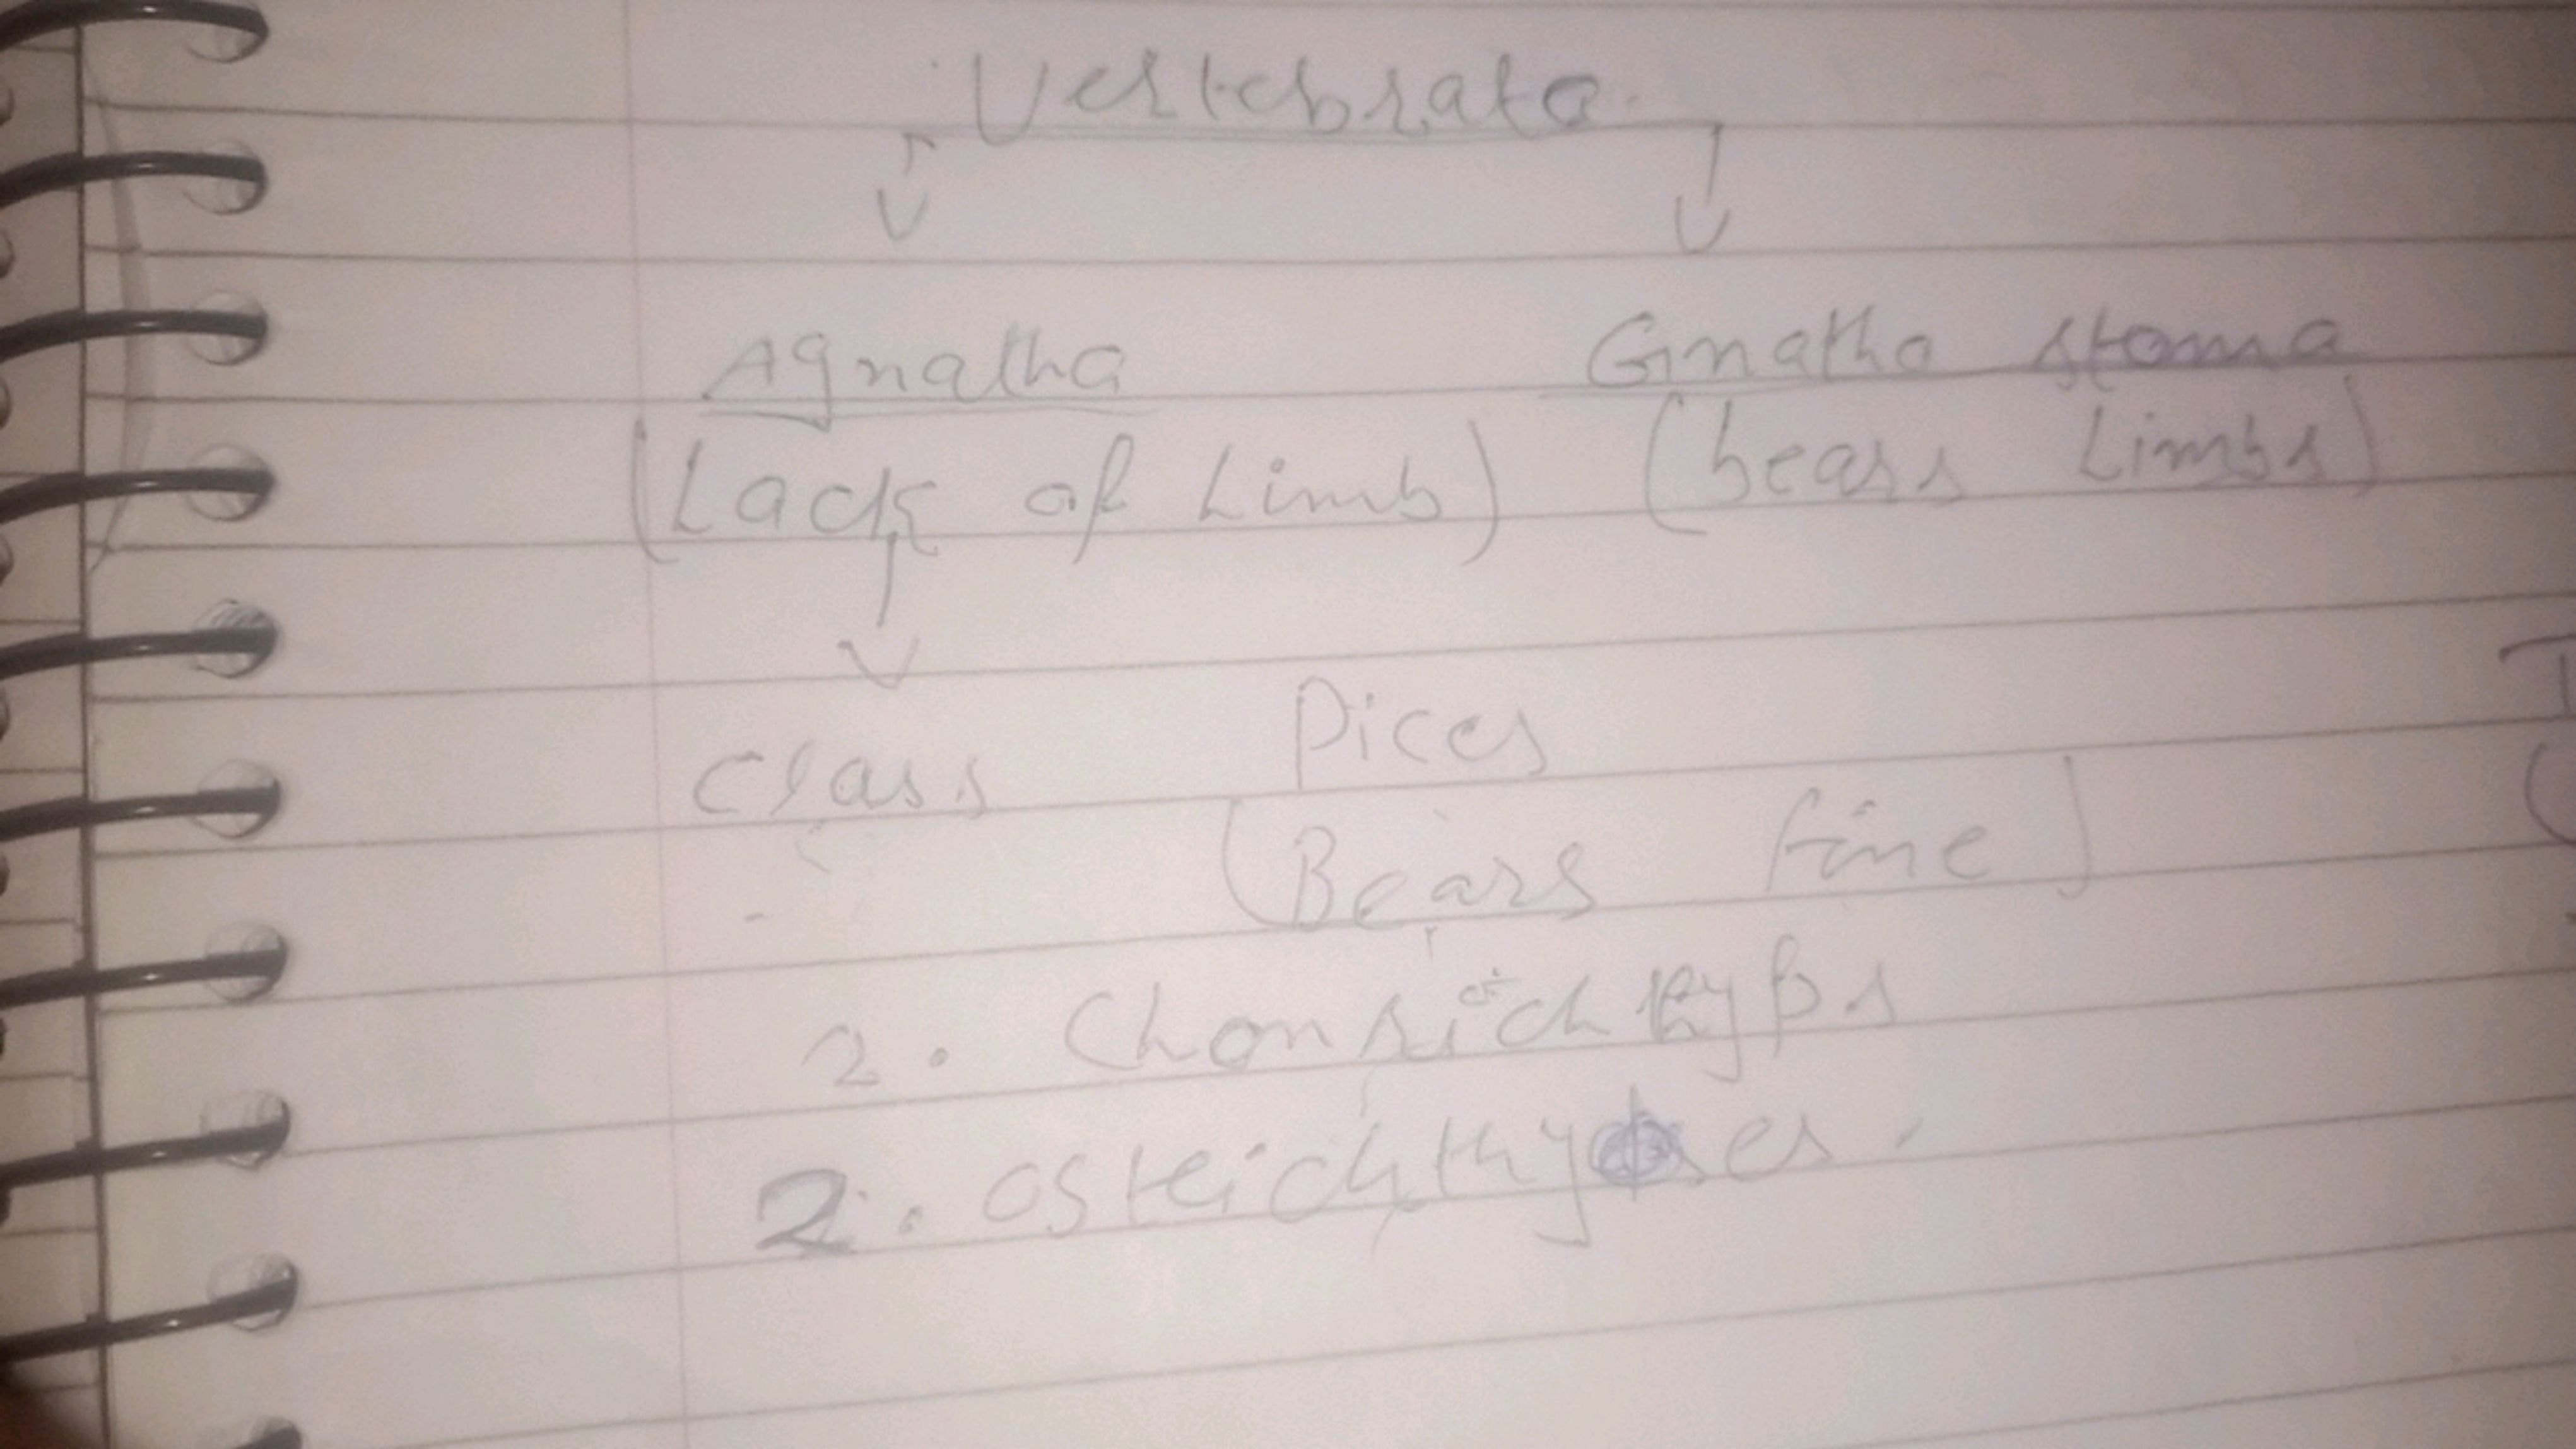 Vertebrata.
Agnatha Gnatho stoma
(Lack of Limb) (bears Limbs)
Class Pices
(Bears fine)
2.
2. Osteichthyoses.